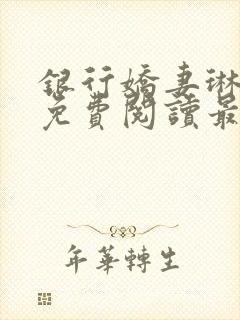 銀行嬌妻琳
免費閱讀最
年華轉生